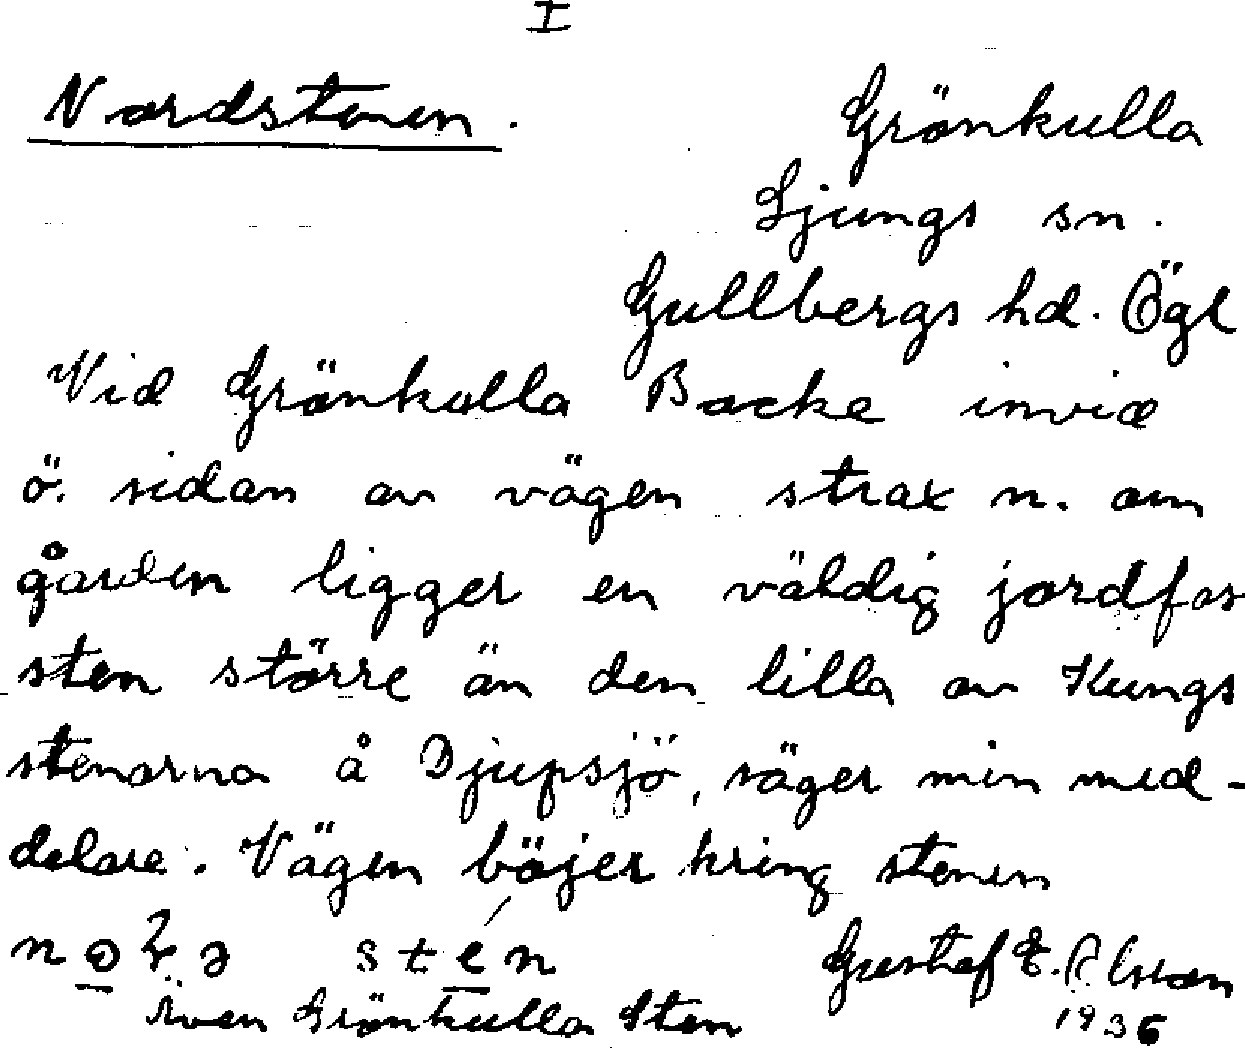 I
Nordstenen.
Grönkulla
Ljungs sn.
Gullbergs hd. Ögl
Vid Grönkulla Backe invid
ö. sidan av vägen strax n. om
gården ligger en väldig jordfas
sten större än den lilla av Kungs
stenarna å Djupsjö, säger min med-
delare. Vägen böjer kring stenen
sten Gustaf E. Olsson
Även Grönkulla Sten 1936